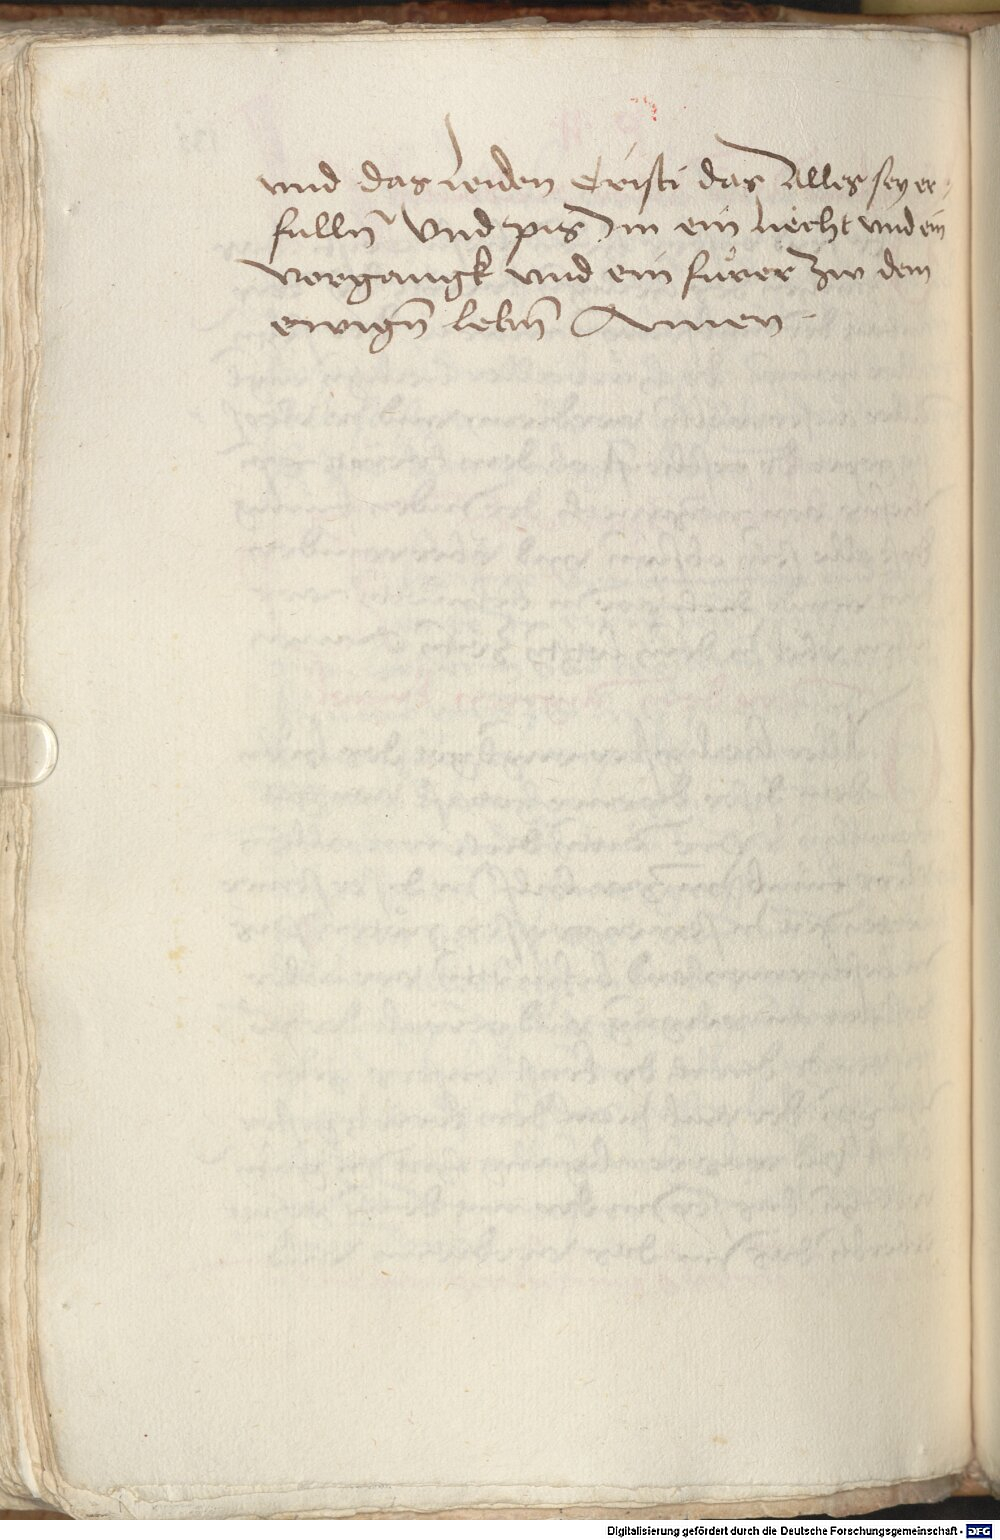 und das Leiden Cristi das Alles sey er-
fulln̄ Und pis Im ein Liecht und ein
vorgangk und ein furer zw dem
ewign̄ lebn̄ Amen
Digitalisierung gefördert durch die Deutsche Forschungsgemeinschaft - DFG